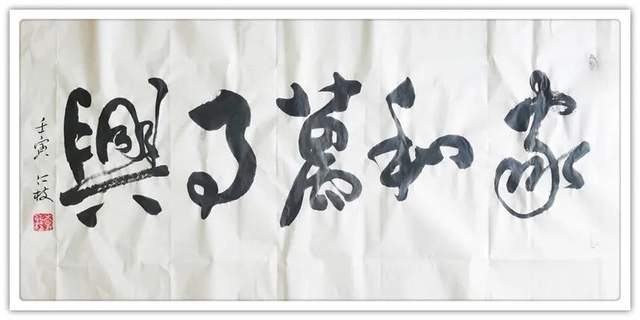 家和萬事興
壬寅 仁枝